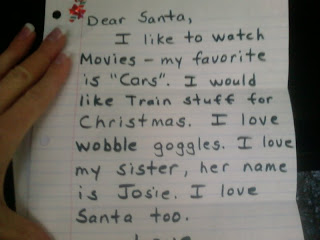 Dear Santa,
I like to watch
Movies - my favorite
is "Cars". I would
like Train stuff for
Christmas. I love
wobble goggles. I love
my sister, her name
is Josie. I love
Santa too.
Love